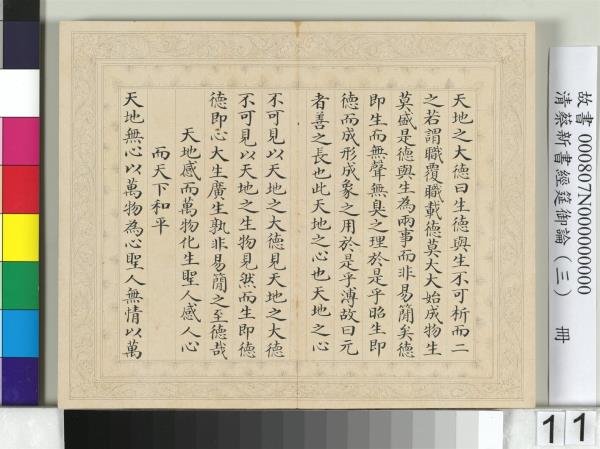 天地之大德曰生德與生不可析而二
之若謂職覆職載德莫大大始成物生
莫盛是德與生為兩事而非易簡矣德
即生而無聲無臭之理於是乎昭生即
德而成形成象之用於是乎溥故曰元
者善之長也此天地之心也天地之心
不可見以天地之大德見天地之大德
不可見以天地之生物見然而生即德
德即心大生廣生孰非易簡之至德哉
天地感而萬物化生聖人感人心
而天下和平
天地無心以萬物為心聖人無情以萬
故書 000807N000000000
清蔡新書經筵御論（三） 冊
11